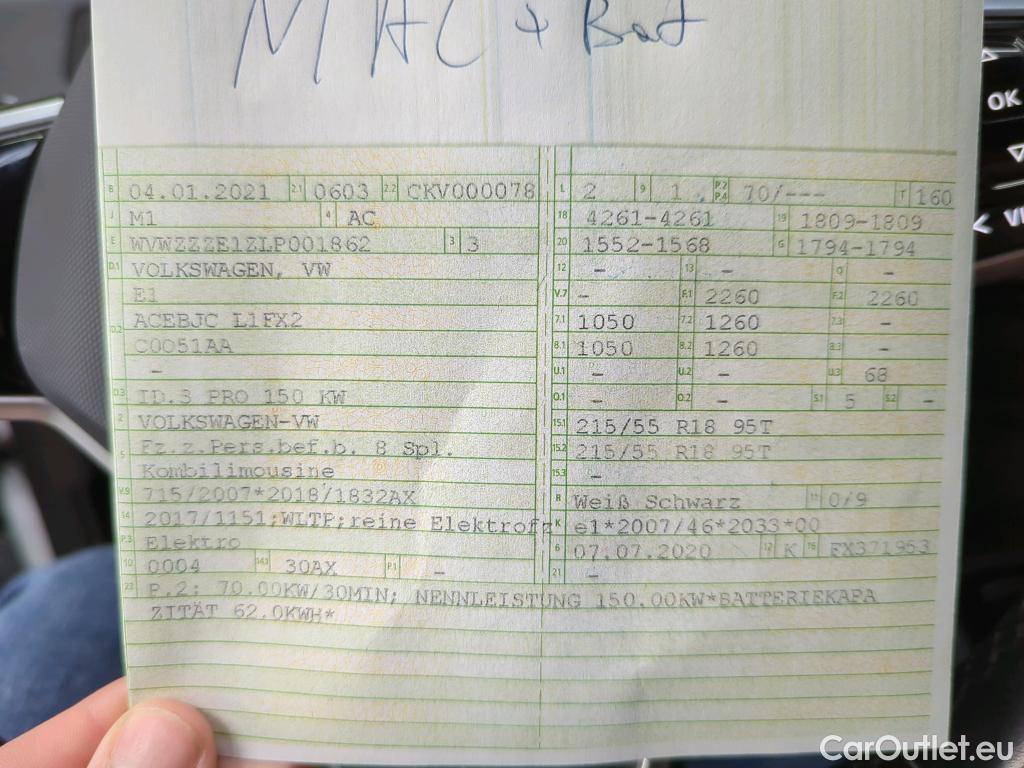 MAC + Bat
OK
B 04.01.2021 2.1 0603 2.2 CKV000078 L 2 9 1 P.2 P.4 70/--- T 160
J M1 4 AC 18 4261-4261 19 1809-1809
E WVWZZZE1ZLP001862 3 3 20 1552-1568 G 1794-1794
D.1 VOLKSWAGEN, VW 12 - 13 - Q -
E1 V.7 - F.1 2260 F.2 2260
D.2 ACEBJC L1FX2 7.1 1050 7.2 1260 7.3 -
C0051AA 8.1 1050 8.2 1260 8.3 -
- U.1 - U.2 - U.3 68
D.3 ID.3 PRO 150 KW O.1 - O.2 - S.1 5 S.2 -
2 VOLKSWAGEN-VW 15.1 215/55 R18 95T
5 Fz.z.Pers.bef.b. 8 Spl. 15.2 215/55 R18 95T
Kombilimousine 15.3 -
V.9 715/2007*2018/1832AX R Weiß Schwarz 11 0/9
14 2017/1151;WLTP;reine Elektrofz K e1*2007/46*2033*00
P.3 Elektro 6 07.07.2020 17 K 16 FX371953
10 0004 14.1 30AX P.1 - 21 -
22 P.2: 70.00KW/30MIN; NENNLEISTUNG 150.00KW*BATTERIEKAPA
ZITÄT 62.0KWH*
CarOutlet.eu